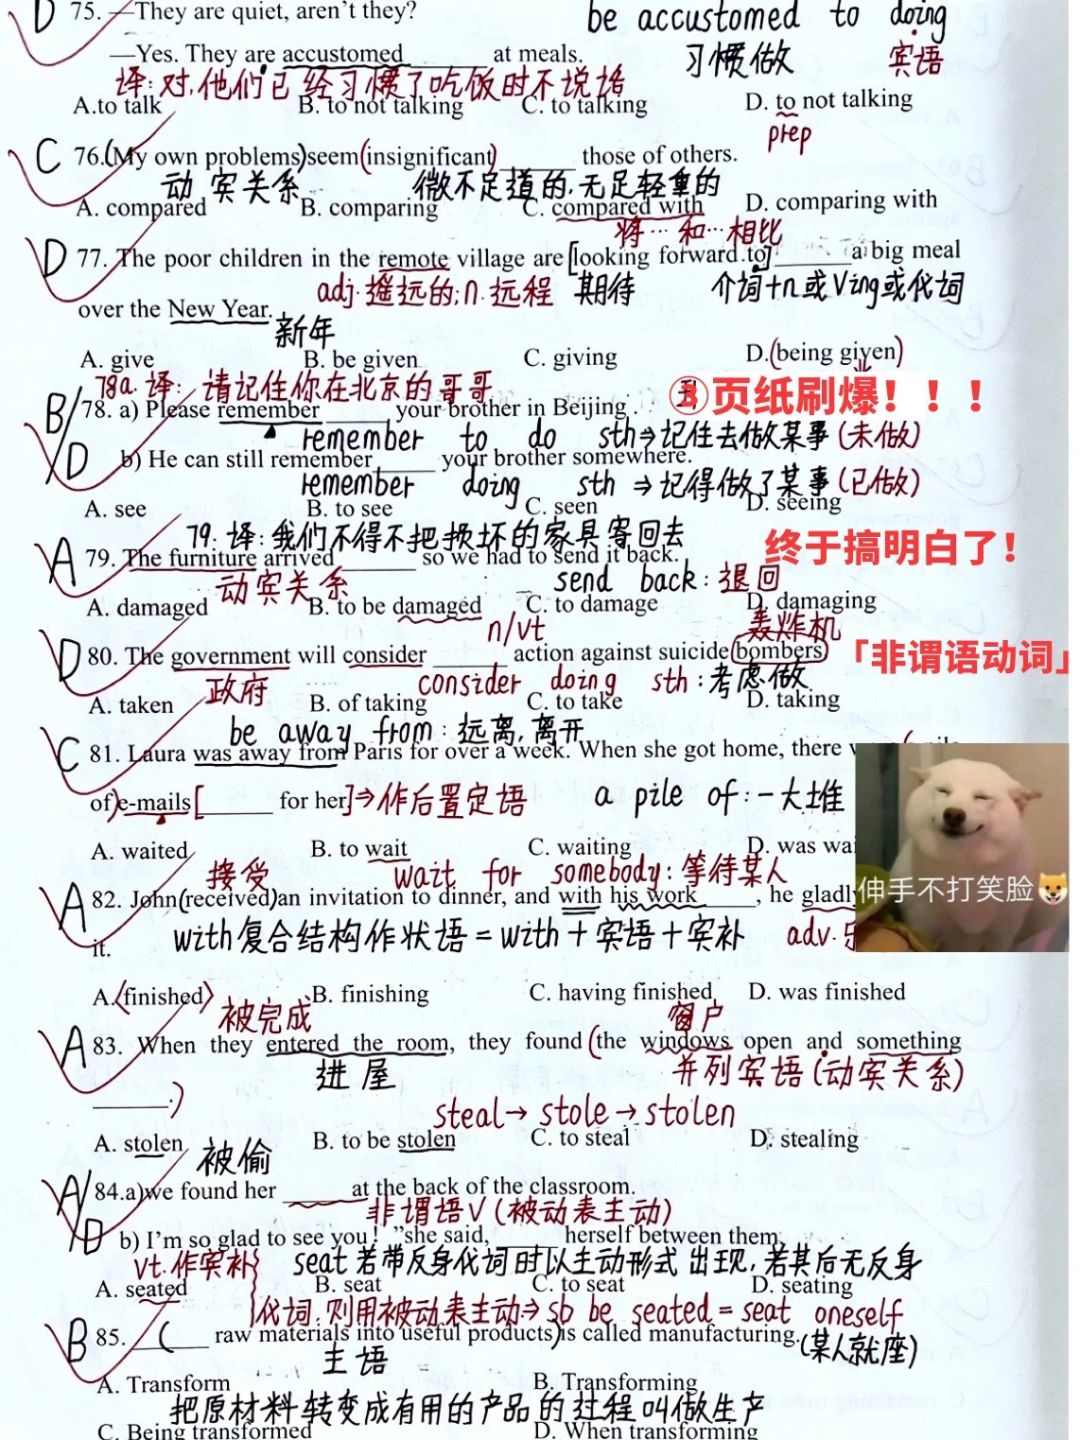 D 75. —They are quiet, aren't they? be accustomed to doing
—Yes. They are accustomed ______ at meals. 习惯做 宾语
译:对,他们已经习惯了吃饭时不说话
A.to talk B. to not talking C. to talking D. to not talking
prep
C 76.(My own problems)seem(insignificant)______ those of others.
动宾关系 微不足道的,无足轻重的
A. compared B. comparing C. compared with D. comparing with
将…和…相比
D 77. The poor children in the remote village are [looking forward to]______a big meal
adj.遥远的;n.远程 期待 介词+n或Ving或代词
over the New Year.
新年
A. give B. be given C. giving D.(being given)
78a.译:请记住你在北京的哥哥
③页纸刷爆!!!
B/D 78. a) Please remember ______ your brother in Beijing .
remember to do sth⇒记住去做某事(未做)
b) He can still remember______ your brother somewhere.
remember doing sth ⇒记得做了某事(已做)
A. see B. to see C. seen D. seeing
79.译:我们不得不把损坏的家具寄回去
终于搞明白了!
A 79. The furniture arrived ______ so we had to send it back.
动宾关系 send back:退回
A. damaged B. to be damaged C. to damage D. damaging
n/vt 轰炸机
D 80. The government will consider ______ action against suicide(bombers)
「非谓语动词」
政府 consider doing sth:考虑做
A. taken B. of taking C. to take D. taking
be away from:远离,离开
C 81. Laura was away from Paris for over a week. When she got home, there
of)e-mails[______ for her]⇒作后置定语 a pile of:一大堆
A. waited B. to wait C. waiting D. was wai
接受 wait for somebody:等待某人
伸手不打笑脸
A 82. John(received)an invitation to dinner, and with his work______, he gladl
with复合结构作状语=with+宾语+宾补 adv.
it.
A.(finished) B. finishing C. having finished D. was finished
被完成 窗户
A 83. When they entered the room, they found (the windows open and something
进屋 并列宾语(动宾关系)
______.)
steal→stole→stolen
A. stolen B. to be stolen C. to steal D. stealing
被偷
A/D 84.a)we found her ______at the back of the classroom.
非谓语V(被动表主动)
b) I'm so glad to see you! ”she said, ______herself between them.
vt.作宾补 seat若带反身代词时以主动形式出现,若其后无反身
A. seated B. seat C. to seat D. seating
代词,则用被动表主动⇒sb be seated = seat oneself
B 85. ______ raw materials into useful products)is called manufacturing.
主语 (某人就座)
A. Transform B. Transforming
把原材料转变成有用的产品的过程叫做生产
C. Being transformed D. When transforming